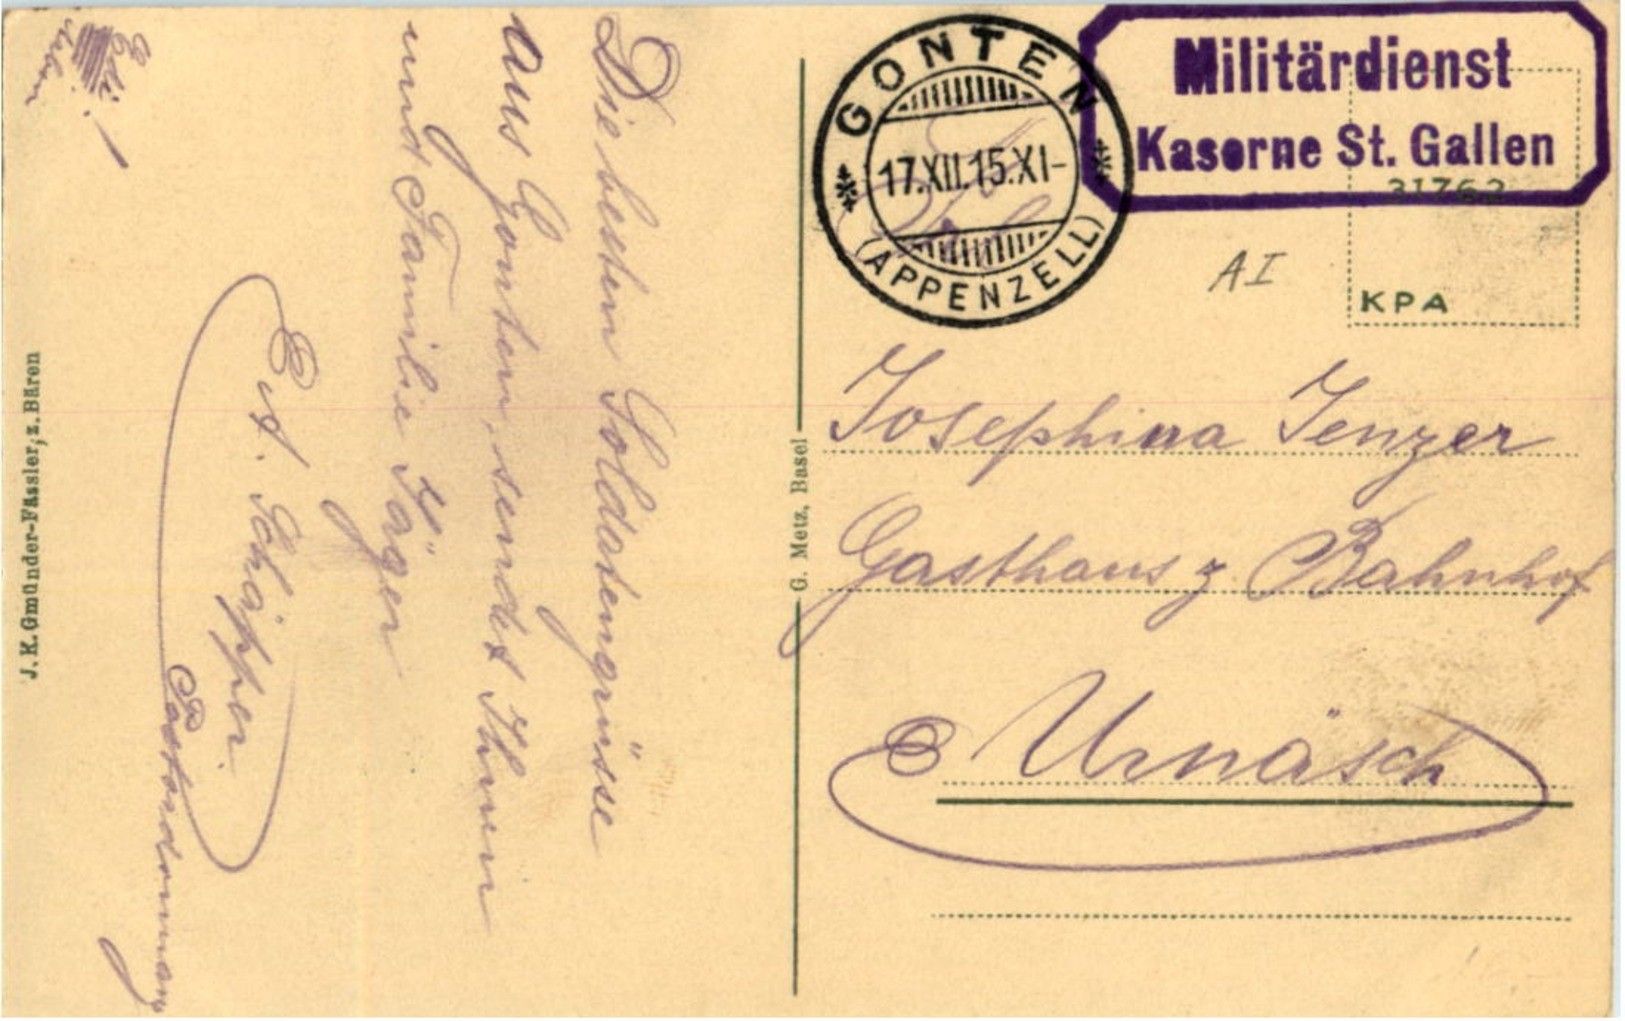 Die besten Soldatengrüsse
Aus Gonten, sendet Ihnen
und Familie Jäger
E. A. Schäpper.
J. K. Gmünder-Fässler, z. Bären
G. Metz, Basel
GONTEN
17.XII.15.XI-
(APPENZELL)
Militärdienst
Kaserne St. Gallen
31763
AI
KPA
Josephina Jenzer
Gasthaus z. Bahnhof
Urnäsch